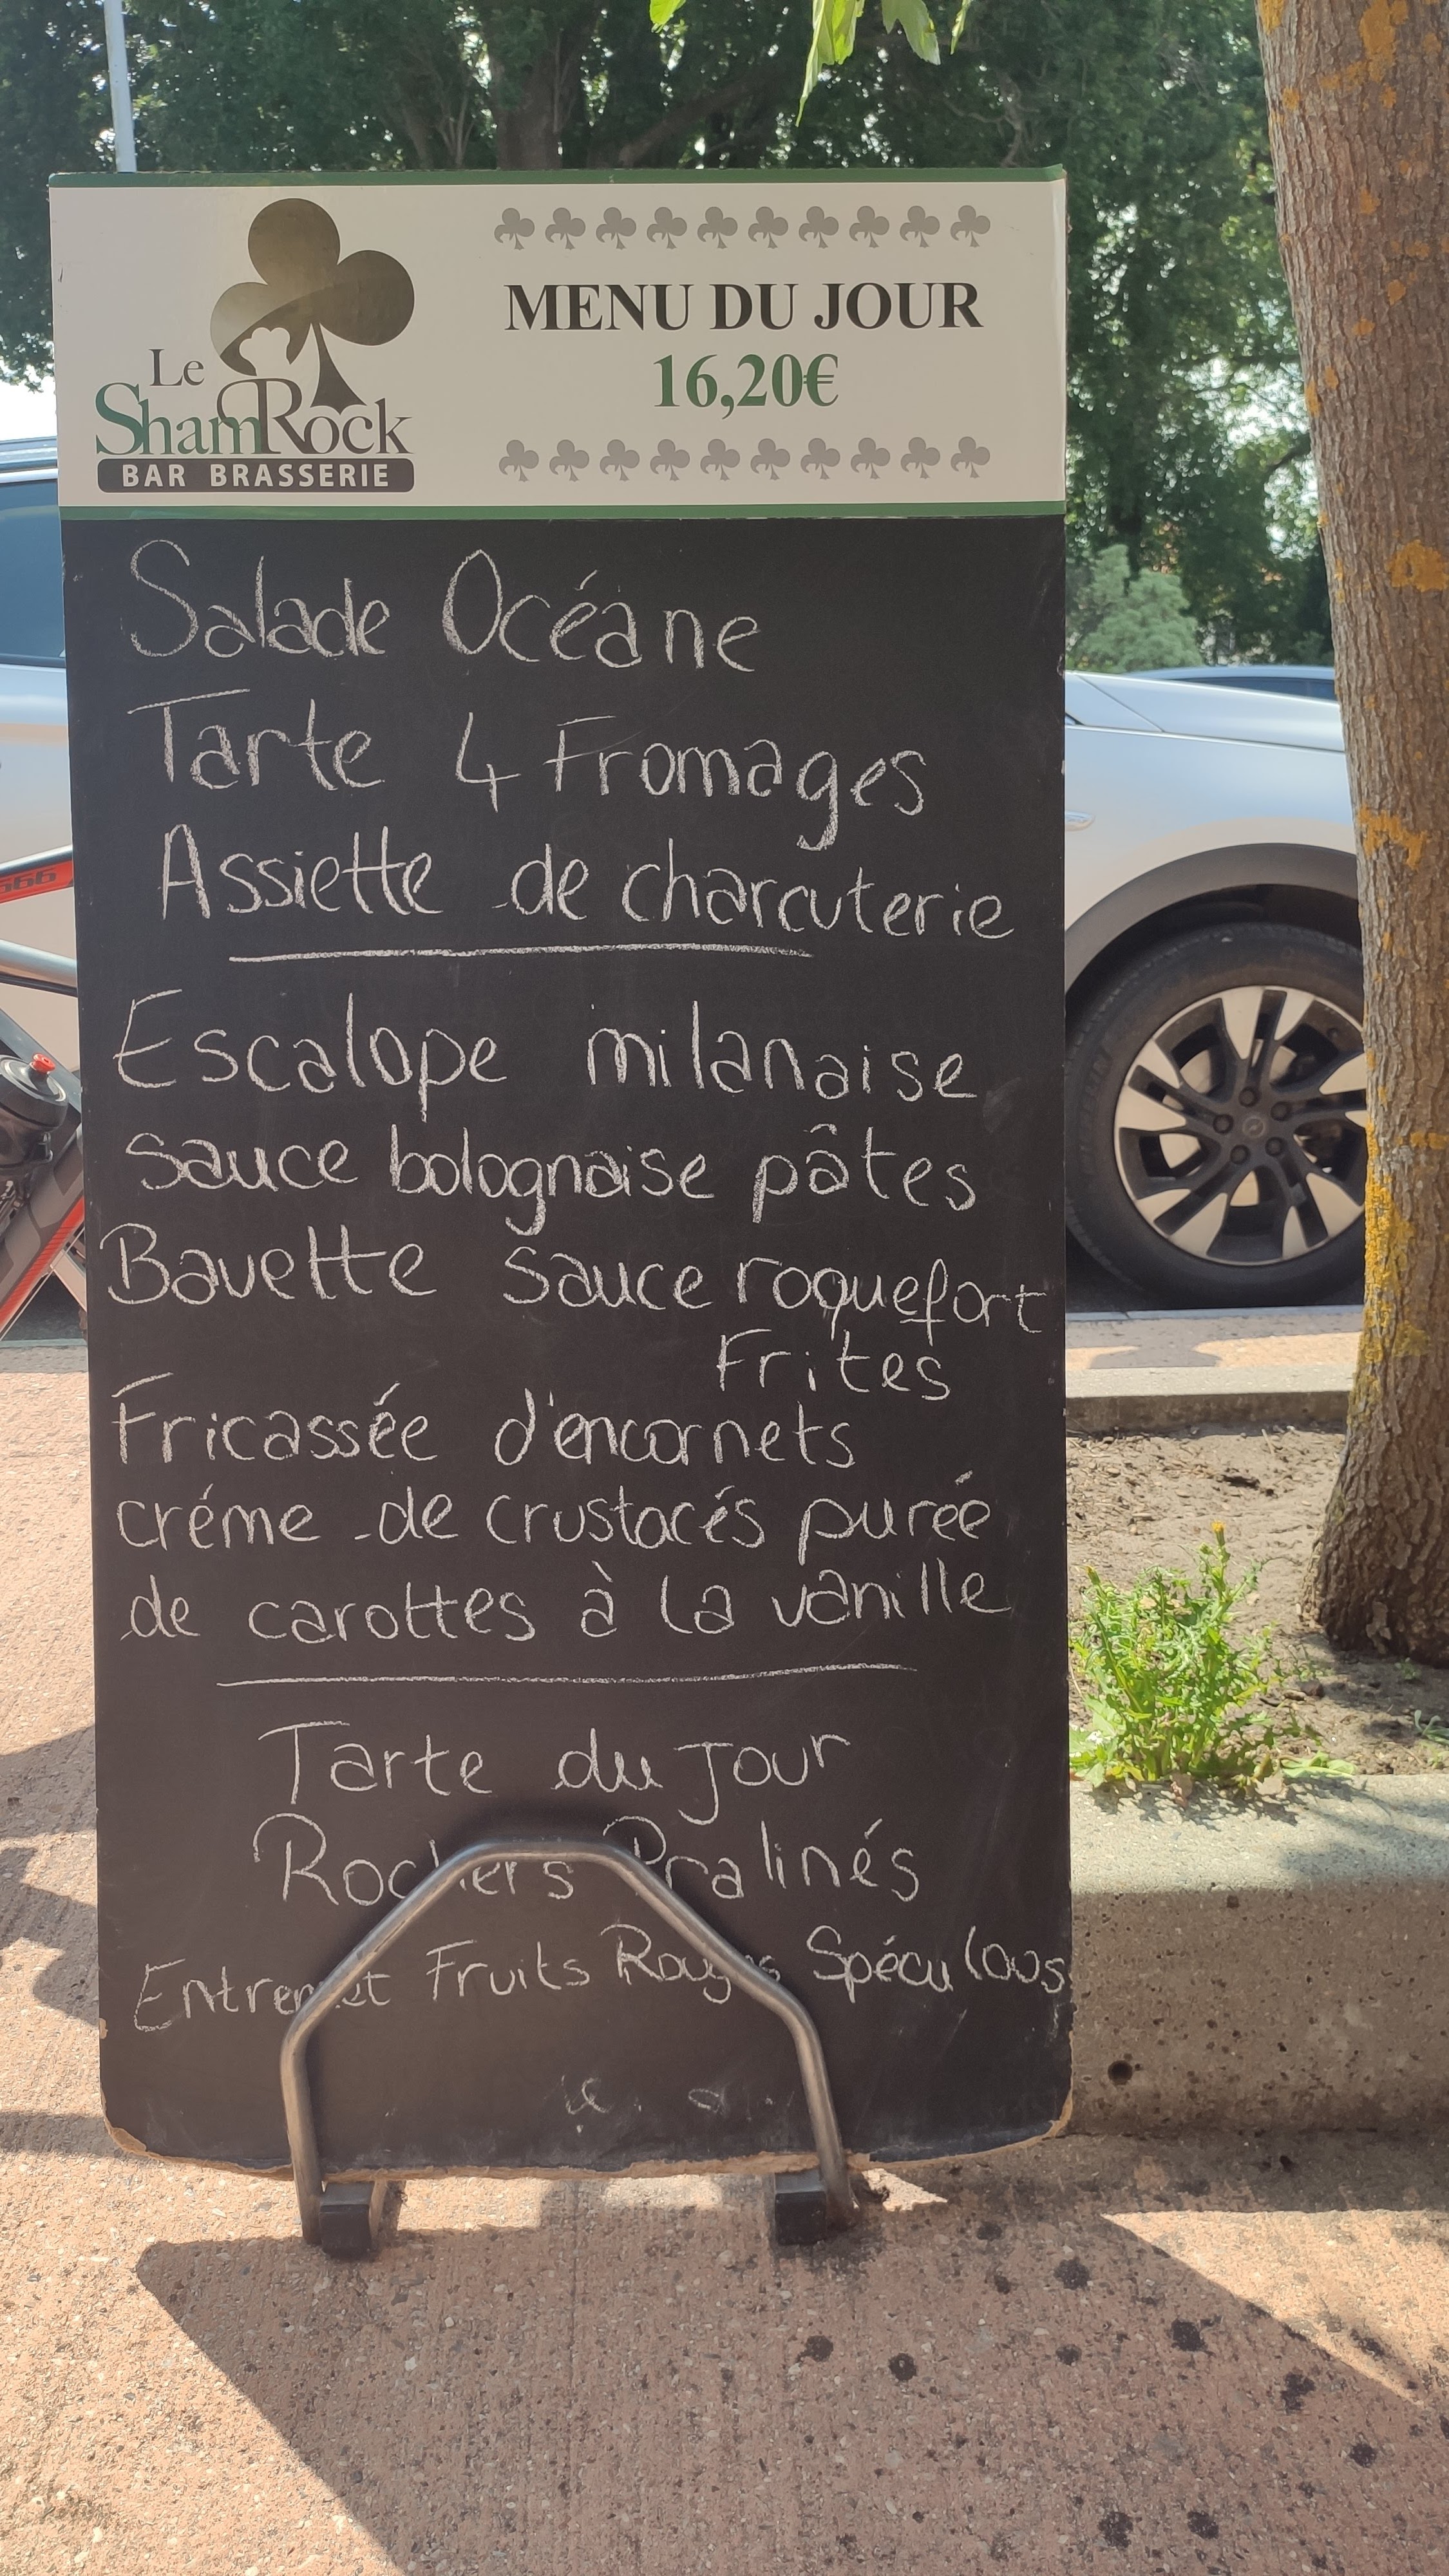 Le
ShamRock
BAR BRASSERIE
MENU DU JOUR
16,20€
Salade Océane
Tarte 4 Fromages
Assiette de charcuterie
Escalope milanaise
sauce bolognaise pâtes
Bavette sauce roquefort
Frites
Fricassée d'encornets
créme de crustacés purée
de carottes à la vanille
Tarte du jour
Rochers Pralinés
Entremet Fruits Rouges Spéculoos
666